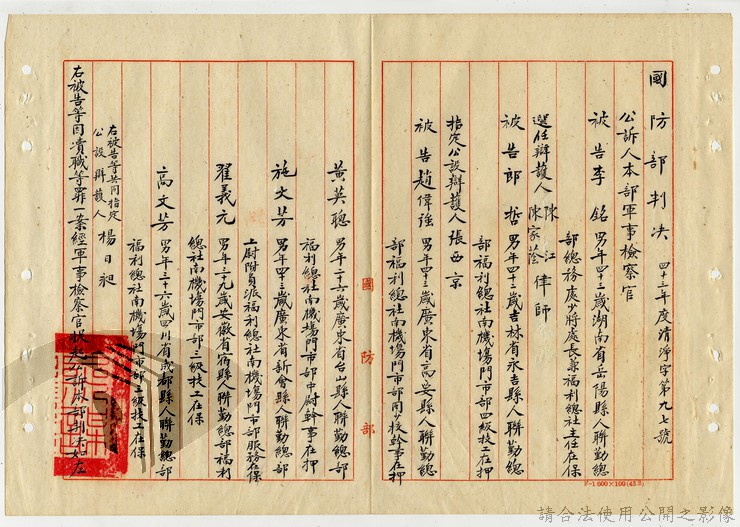 國防部判決 四十三年度清淨字第九七號
公訴人本部軍事檢察官
被告李銘 男年四十三歲湖南省岳陽縣人聯勤總
部總務處少將處長兼福利總社主任在保
選任辯護人 陳江 陳家蔭 律師
被告郎哲 男年四十三歲吉林省永吉縣人聯勤總
部福利總社南機場門市部四級技工在押
指定公設辯護人張西京
被告趙偉強 男年四三歲廣東省高要縣人聯勤總
部福利總社南機場門市部同上校幹事在押
國防部
黃英聰 男年二十六歲廣東省台山縣人聯勤總
福利總社南機場門市部中尉幹事在押
施文芳 男年四三歲廣東省新會縣人聯勤總部
上尉附員派福利總社南機場門市部服務在保
翟義元 男年三十九歲安徽省宿縣人聯勤總部福利
總社南機場門市部三級技工在保
高文芳 男年三十六歲四川省成都縣人聯勤總部
福利總社南機場門市部五級技工在保
右被告等共同指定
公設辯護人 楊日昶
右被告等因瀆職等罪一案經軍事檢察官提起公訴本部判決如左
F-1600×100(43.2)
請合法使用公開之影像